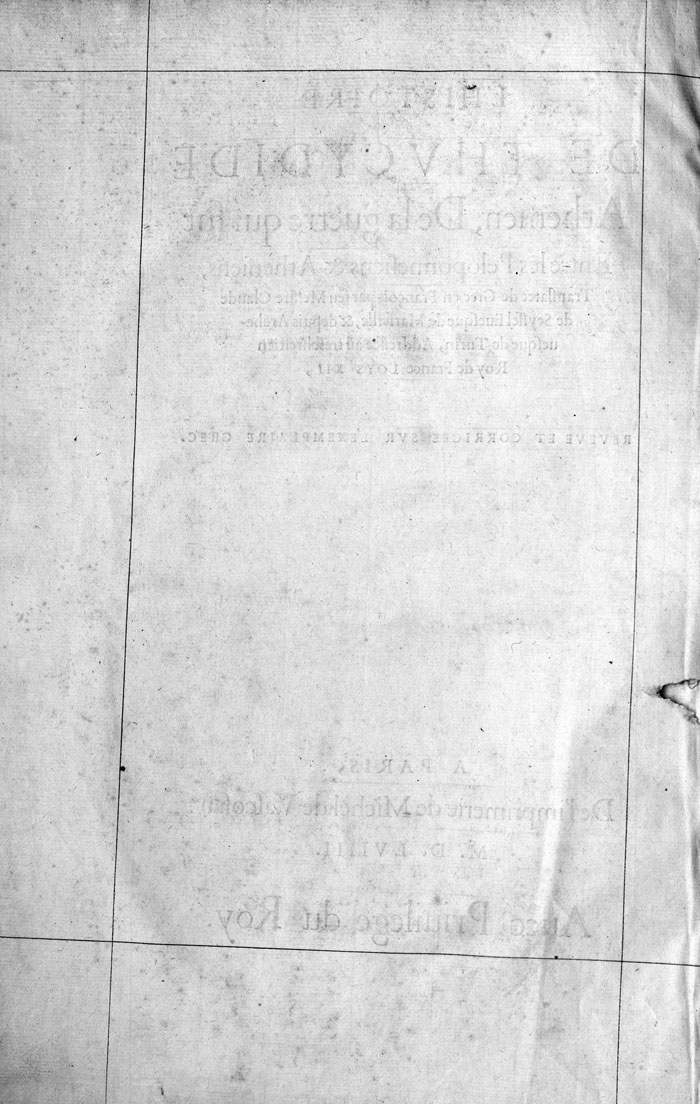 L'HISTOIRE
DE THVCYDIDE
Athenien, De la guerre qui fut
entre les Peloponnesiens & Atheniens,
Translatee de Grec en François par feu Messire Claude
de Seyssel Euesque de Marseille, & depuis Arche-
uesque de Turin,
Roy de France LOYS XII,
REVEVE ET CORRIGEE SVR L'EXEMPLAIRE GREC.
A PARIS,
De l'imprimerie de Michel de Vascosan
M. D. LVIIII.
Auec Priuilege du Roy.